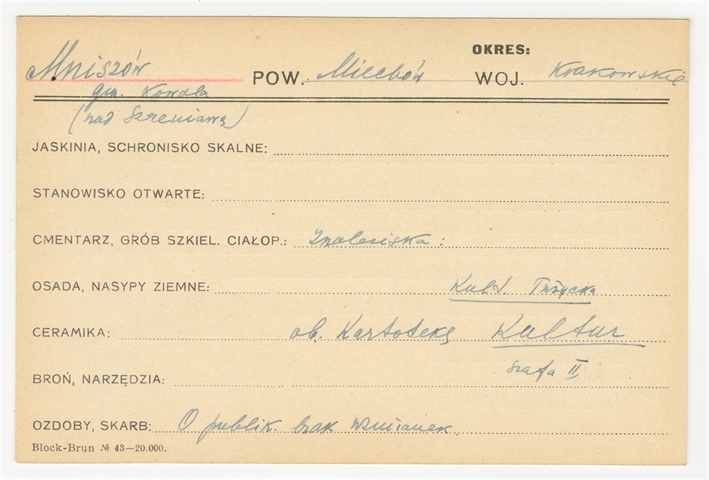 OKRES:
Mniszów POW. Miechów WOJ. Krakowskie
gm. Kowala
(nad Szreniawą)
JASKINIA, SCHRONISKO SKALNE:
STANOWISKO OTWARTE:
CMENTARZ, GRÓB SZKIEL. CIAŁOP.: Znalesiska:
OSADA, NASYPY ZIEMNE: Kult. Łużycka
CERAMIKA: ob. Kartotekę Kultur
szafa II
BROŃ, NARZĘDZIA:
OZDOBY, SKARB: O publik. brak wzmianek.
Block-Brun № 43—20.000.